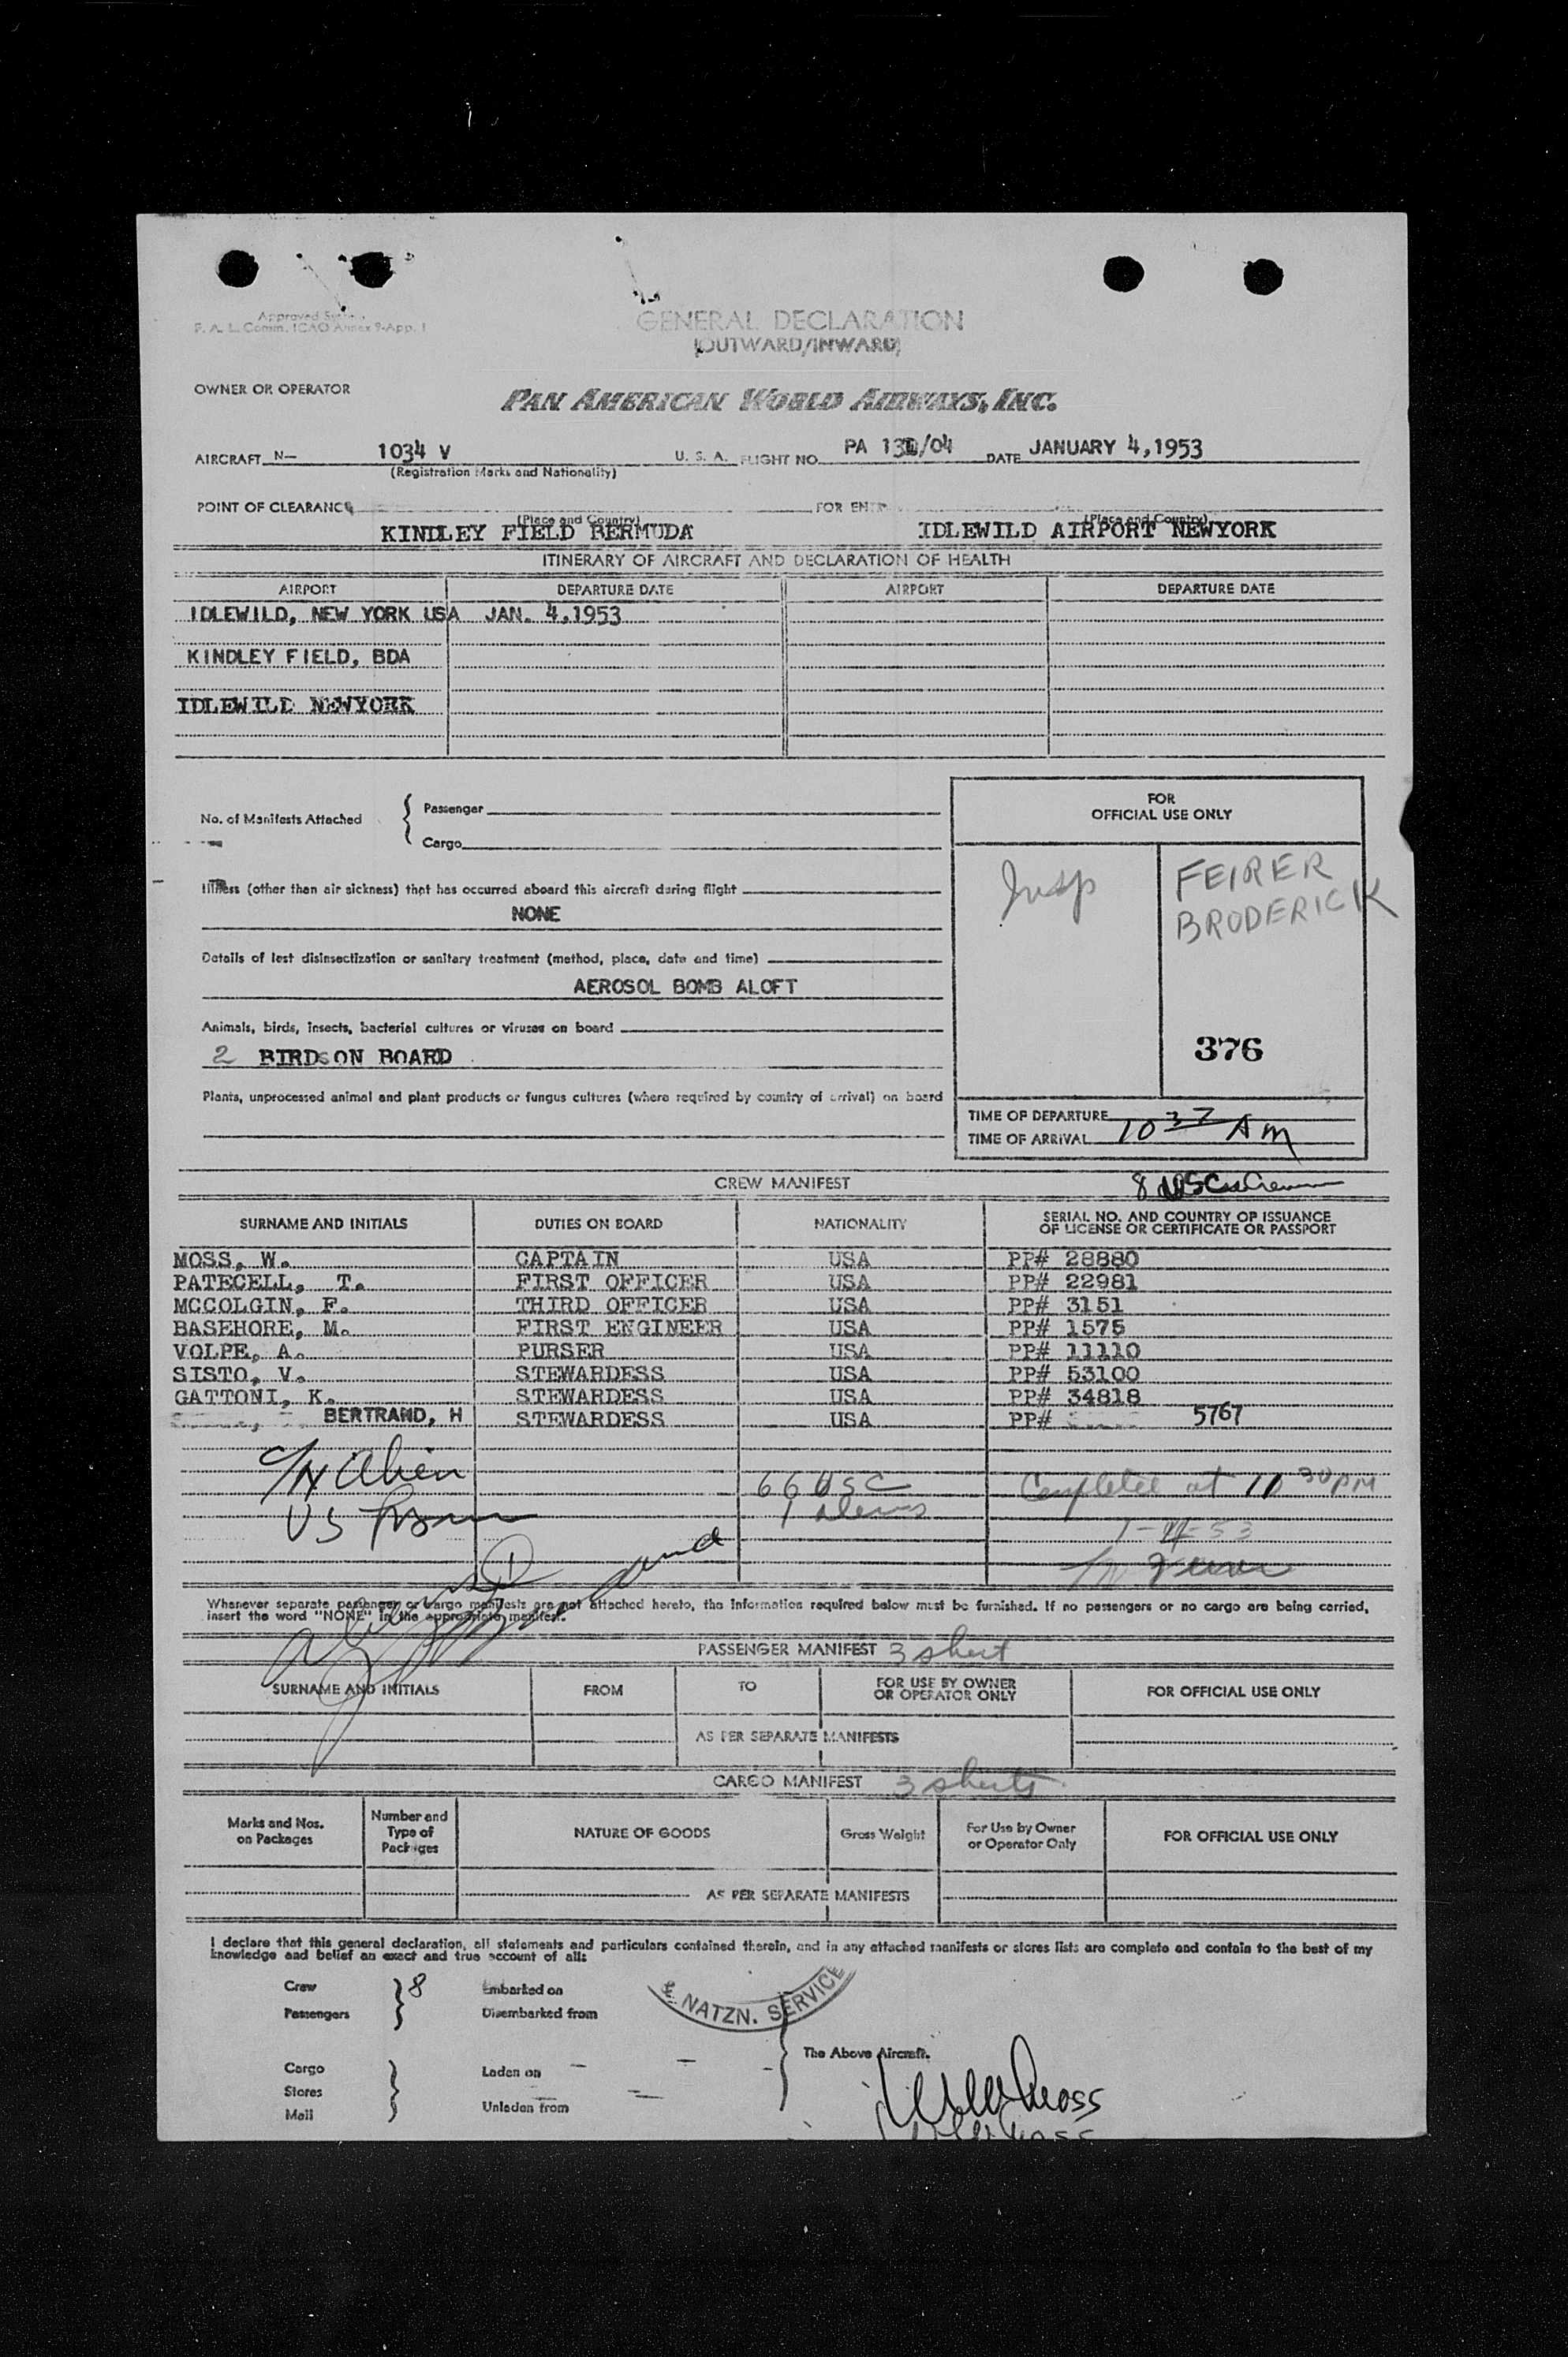 Approved
F. A. L. Comm. ICAO Annex 9-App. 1
GENERAL DECLARATION
(OUTWARD/INWARD)
OWNER OR OPERATOR
PAN AMERICAN WORLD AIRWAYS, INC.
AIRCRAFT N- 1034 V U. S. A. FLIGHT NO. PA 131/04 DATE JANUARY 4,1953
(Registration Marks and Nationality)
POINT OF CLEARANCE FOR ENTRY
(Place and Country) (Place and Country)
KINDLEY FIELD BERMUDA IDLEWILD AIRPORT NEWYORK
ITINERARY OF AIRCRAFT AND DECLARATION OF HEALTH
AIRPORT DEPARTURE DATE AIRPORT DEPARTURE DATE
IDLEWILD, NEW YORK USA JAN. 4,1953
KINDLEY FIELD, BDA
IDLEWILD NEWYORK
FOR
OFFICIAL USE ONLY
No. of Manifests Attached { Passenger
Cargo
Insp FEIRER
BRODERICK
Illness (other than air sickness) that has occurred aboard this aircraft during flight
NONE
Details of last disinsectization or sanitary treatment (method, place, date and time)
AEROSOL BOMB ALOFT
Animals, birds, insects, bacterial cultures or viruses on board
2 BIRDS ON BOARD
376
Plants, unprocessed animal and plant products or fungus cultures (where required by country of arrival) on board
TIME OF DEPARTURE
TIME OF ARRIVAL 10 37 AM
CREW MANIFEST 8 USC
SURNAME AND INITIALS DUTIES ON BOARD NATIONALITY SERIAL NO. AND COUNTRY OF ISSUANCE
OF LICENSE OR CERTIFICATE OR PASSPORT
MOSS, W. CAPTAIN USA PP# 28880
PATECELL, T. FIRST OFFICER USA PP# 22981
MCCOLGIN, F. THIRD OFFICER USA PP# 3151
BASEHORE, M. FIRST ENGINEER USA PP# 1575
VOLPE, A. PURSER USA PP# 11110
SISTO, V. STEWARDESS USA PP# 53100
GATTONI, K. STEWARDESS USA PP# 34818
BERTRAND, H STEWARDESS USA PP# 5767
Alien
66 USC Completed at 11 30 PM
US 1 Aliens
Whenever separate passenger or cargo manifests are not attached hereto, the information required below must be furnished. If no passengers or no cargo are being carried,
insert the word "NONE" in the appropriate manifest.
PASSENGER MANIFEST 3 sheet
SURNAME AND INITIALS FROM TO FOR USE BY OWNER
OR OPERATOR ONLY FOR OFFICIAL USE ONLY
AS PER SEPARATE MANIFESTS
CARGO MANIFEST 3 sheets
Marks and Nos.
on Packages Number and
Type of
Packages NATURE OF GOODS Gross Weight For Use by Owner
or Operator Only FOR OFFICIAL USE ONLY
AS PER SEPARATE MANIFESTS
I declare that this general declaration, all statements and particulars contained therein, and in any attached manifests or stores lists are complete and contain to the best of my
knowledge and belief an exact and true account of all:
Crew 8 Embarked on
Passengers Disembarked from
& NATZN. SERVICE
The Above Aircraft.
Cargo Laden on
Stores
Mail Unladen from